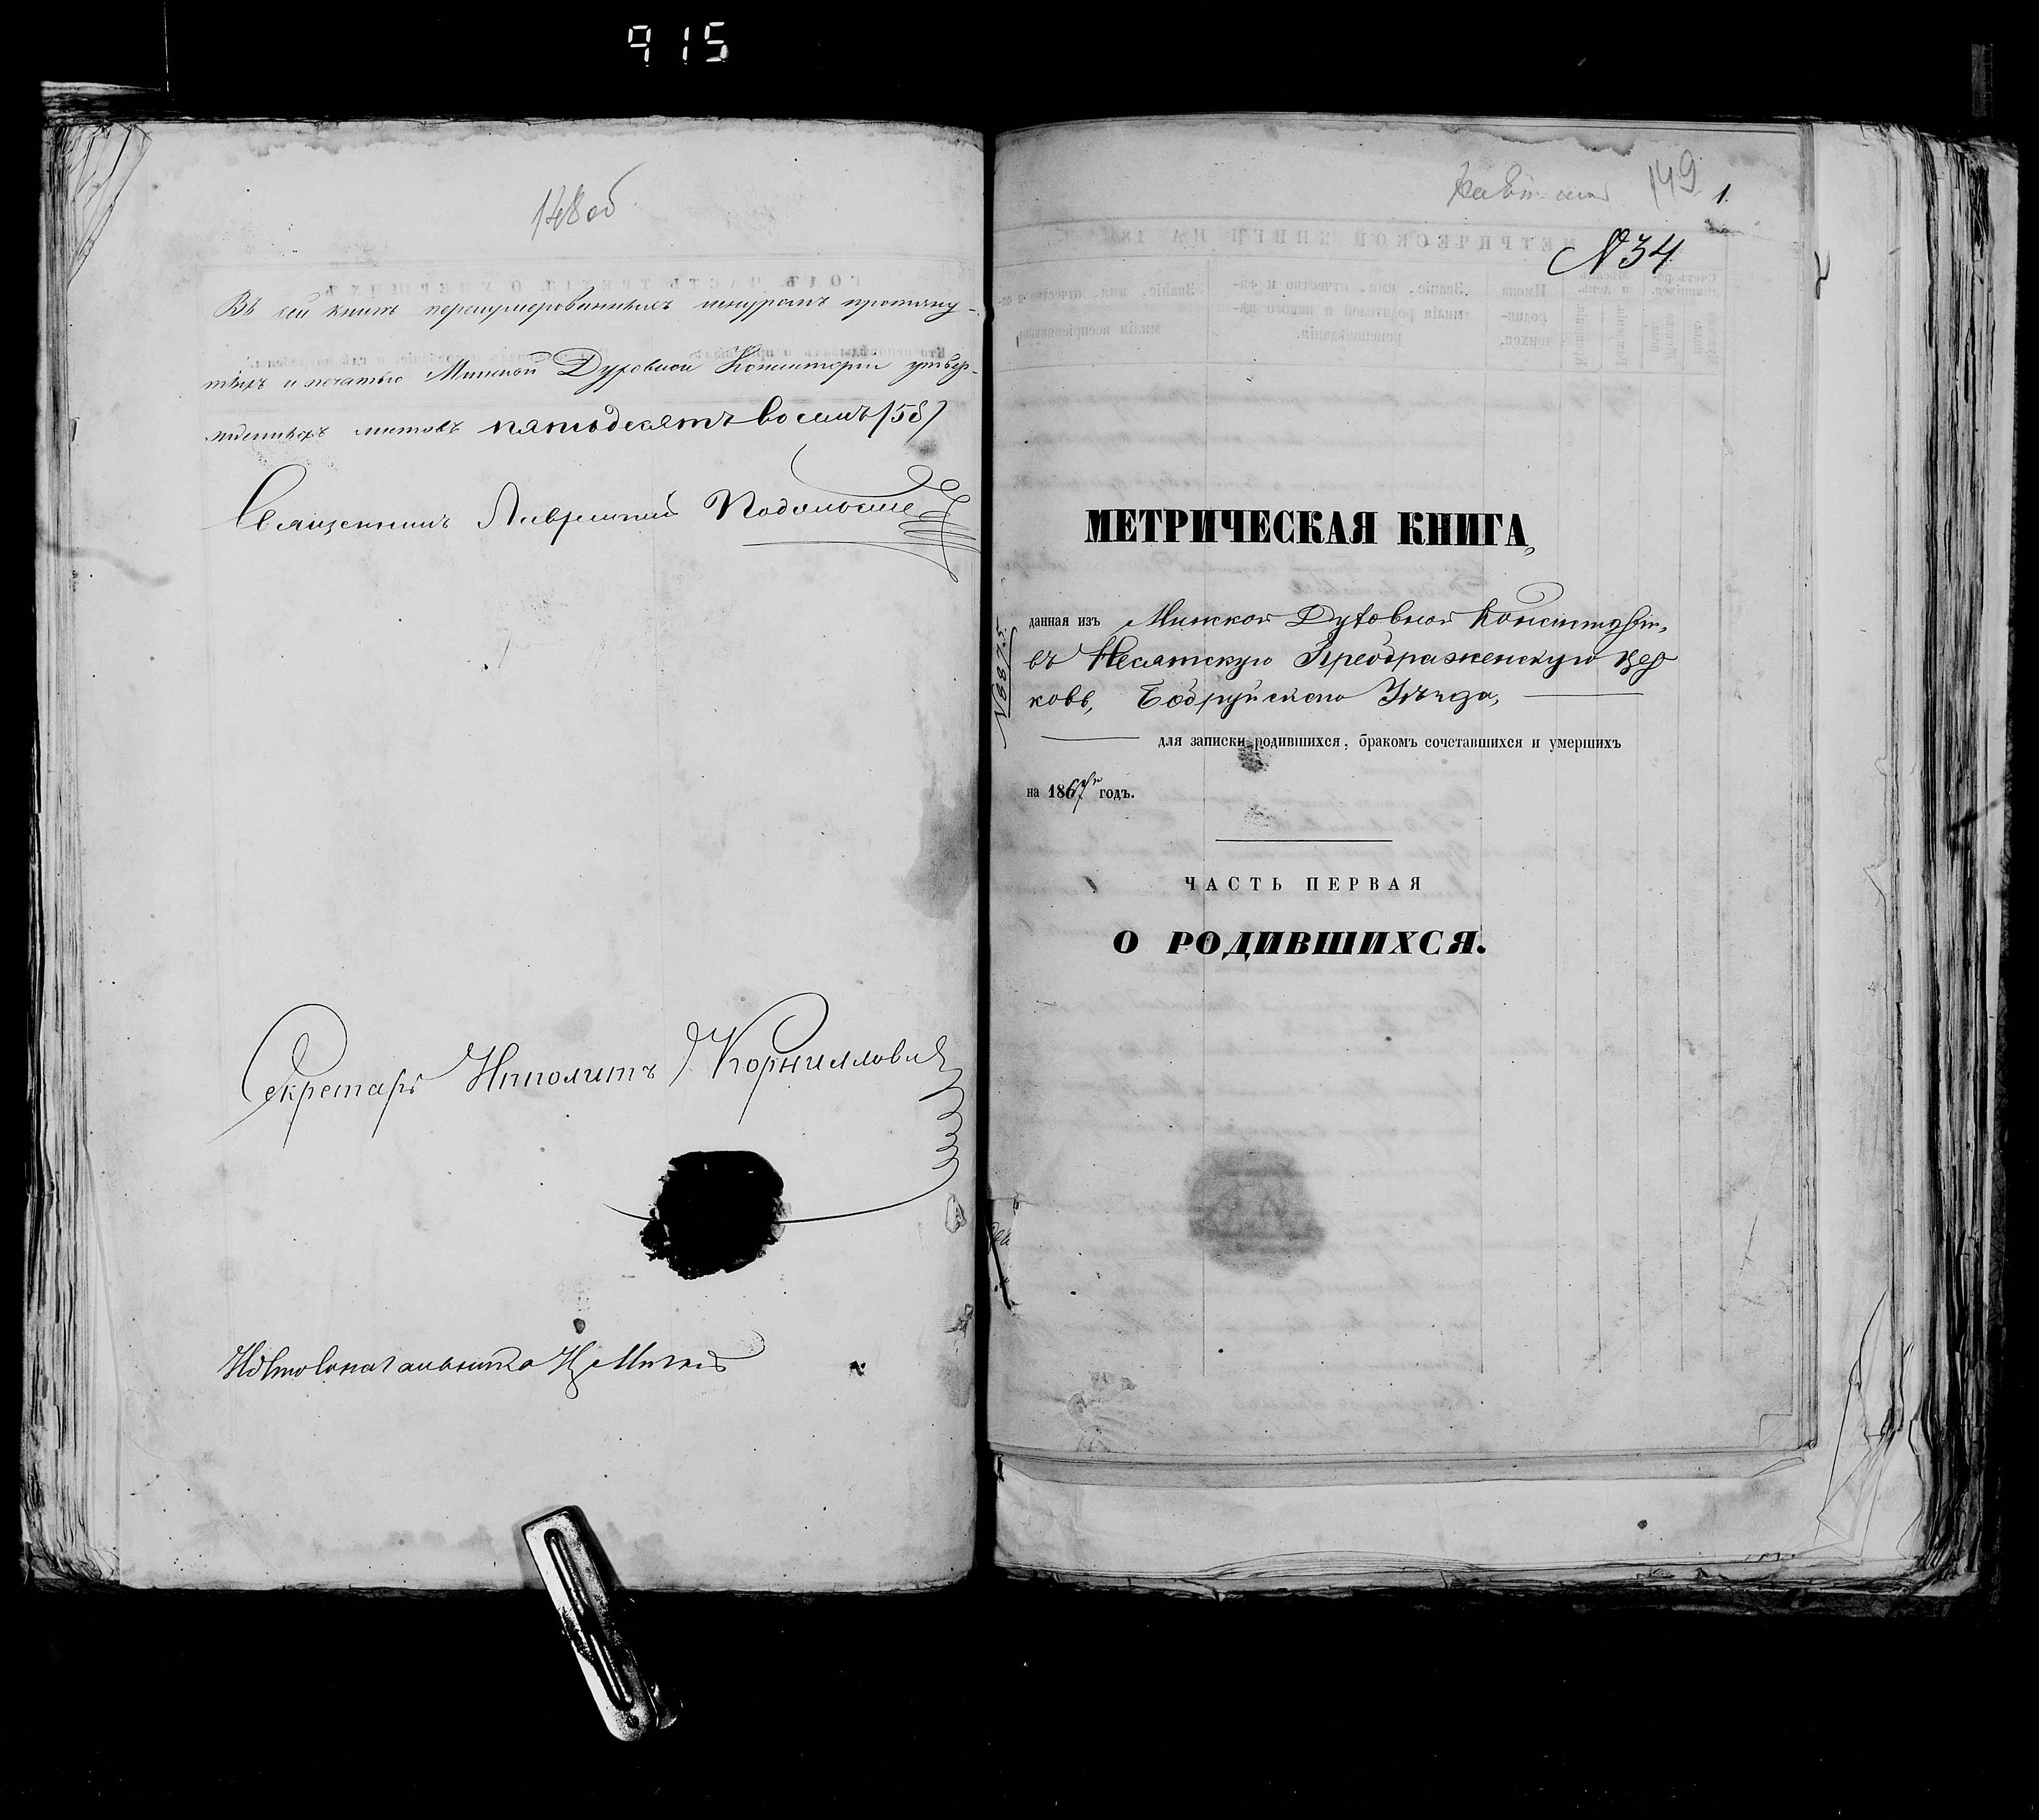 915
148 об
Въ сей книгѣ перенумерованныхъ шнуромъ протяну-
тыхъ и печатью Минской Духовной Консисторіи утвер-
жденныхъ листовъ пятьдесятъ восемь /58/
Священникъ Лаврентій
Секретарь Ипполитъ Корниловичъ
149 1.
N 34
МЕТРИЧЕСКАЯ КНИГА,
данная изъ Минской Духовной Консисторіи,
въ Несятскую Преображенскую цер
ковь, Бобруйскаго Уѣзда,
N 8875.
для записки родившихся, бракомъ сочетавшихся и умершихъ
на 1867й годъ.
ЧАСТЬ ПЕРВАЯ
О РОДИВШИХСЯ.